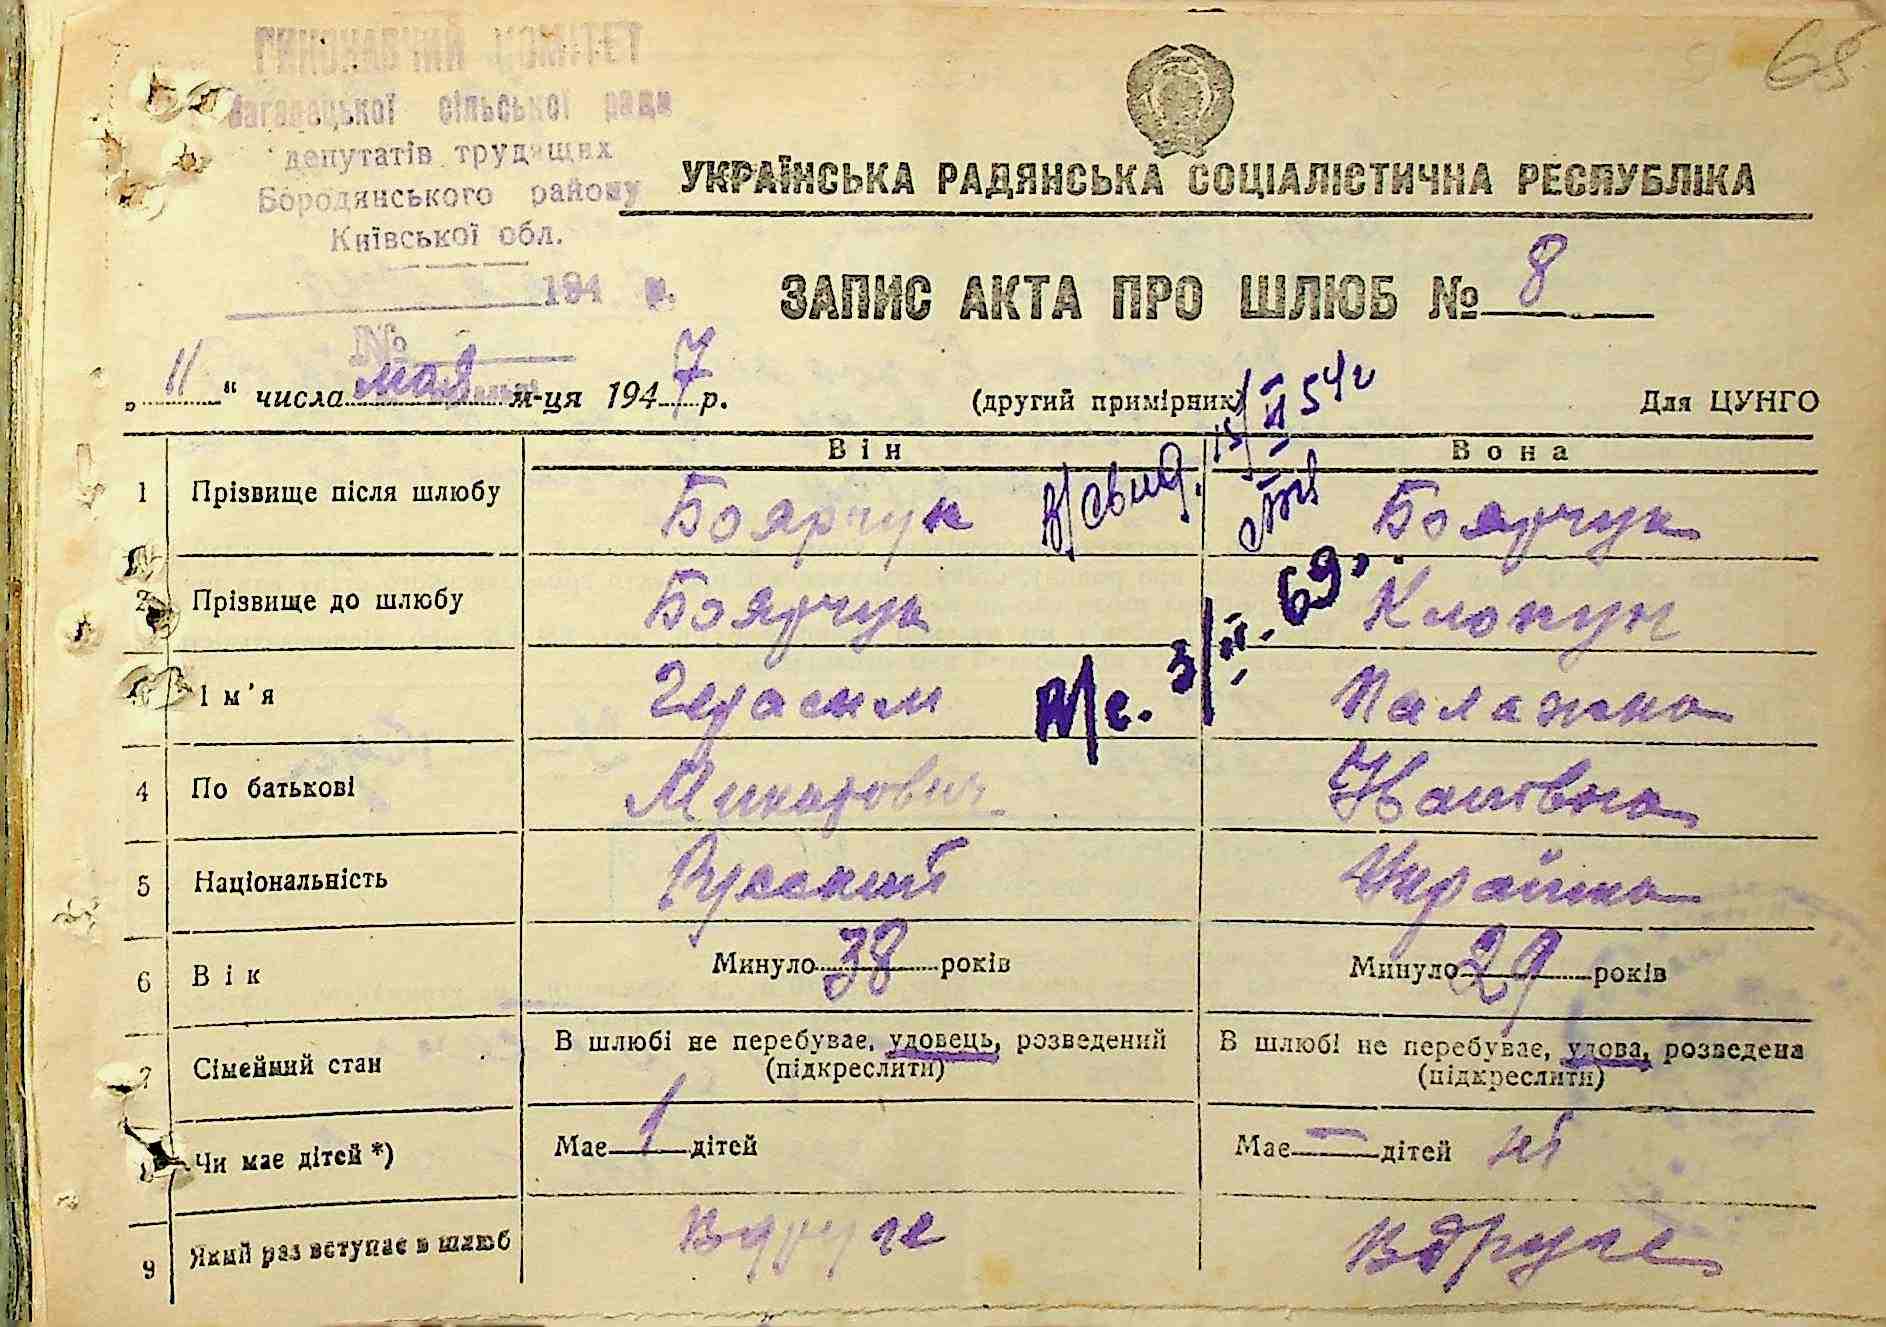 ВИКОНАВЧИЙ КОМІТЕТ
сільської ради
депутатів трудящих
Бородянського району
Київської обл.
194 р.
№
68
УКРАЇНСЬКА РАДЯНСЬКА СОЦІАЛІСТИЧНА РЕСПУБЛІКА
ЗАПИС АКТА ПРО ШЛЮБ № 8
„11“ числа мая м-ця 1947 р. (другий примірник) Для ЦУНГО
Він Вона
1 Прізвище після шлюбу Боярчук Боярчук
в/свид. 15/II 54 г
2 Прізвище до шлюбу Боярчук Клопун
п/с. 3/III. 69.
3 Ім’я Герасим Палажка
4 По батькові Макарович
5 Національність Русский Українка
6 Вік Минуло 38 років Минуло 29 років
7 Сімейний стан В шлюбі не перебуває, удовець, розведений (підкреслити) В шлюбі не перебуває, удова, розведена (підкреслити)
8 Чи має дітей *) Має 1 дітей Має — дітей ні
9 Який раз вступає в шлюб вдруге вдруге